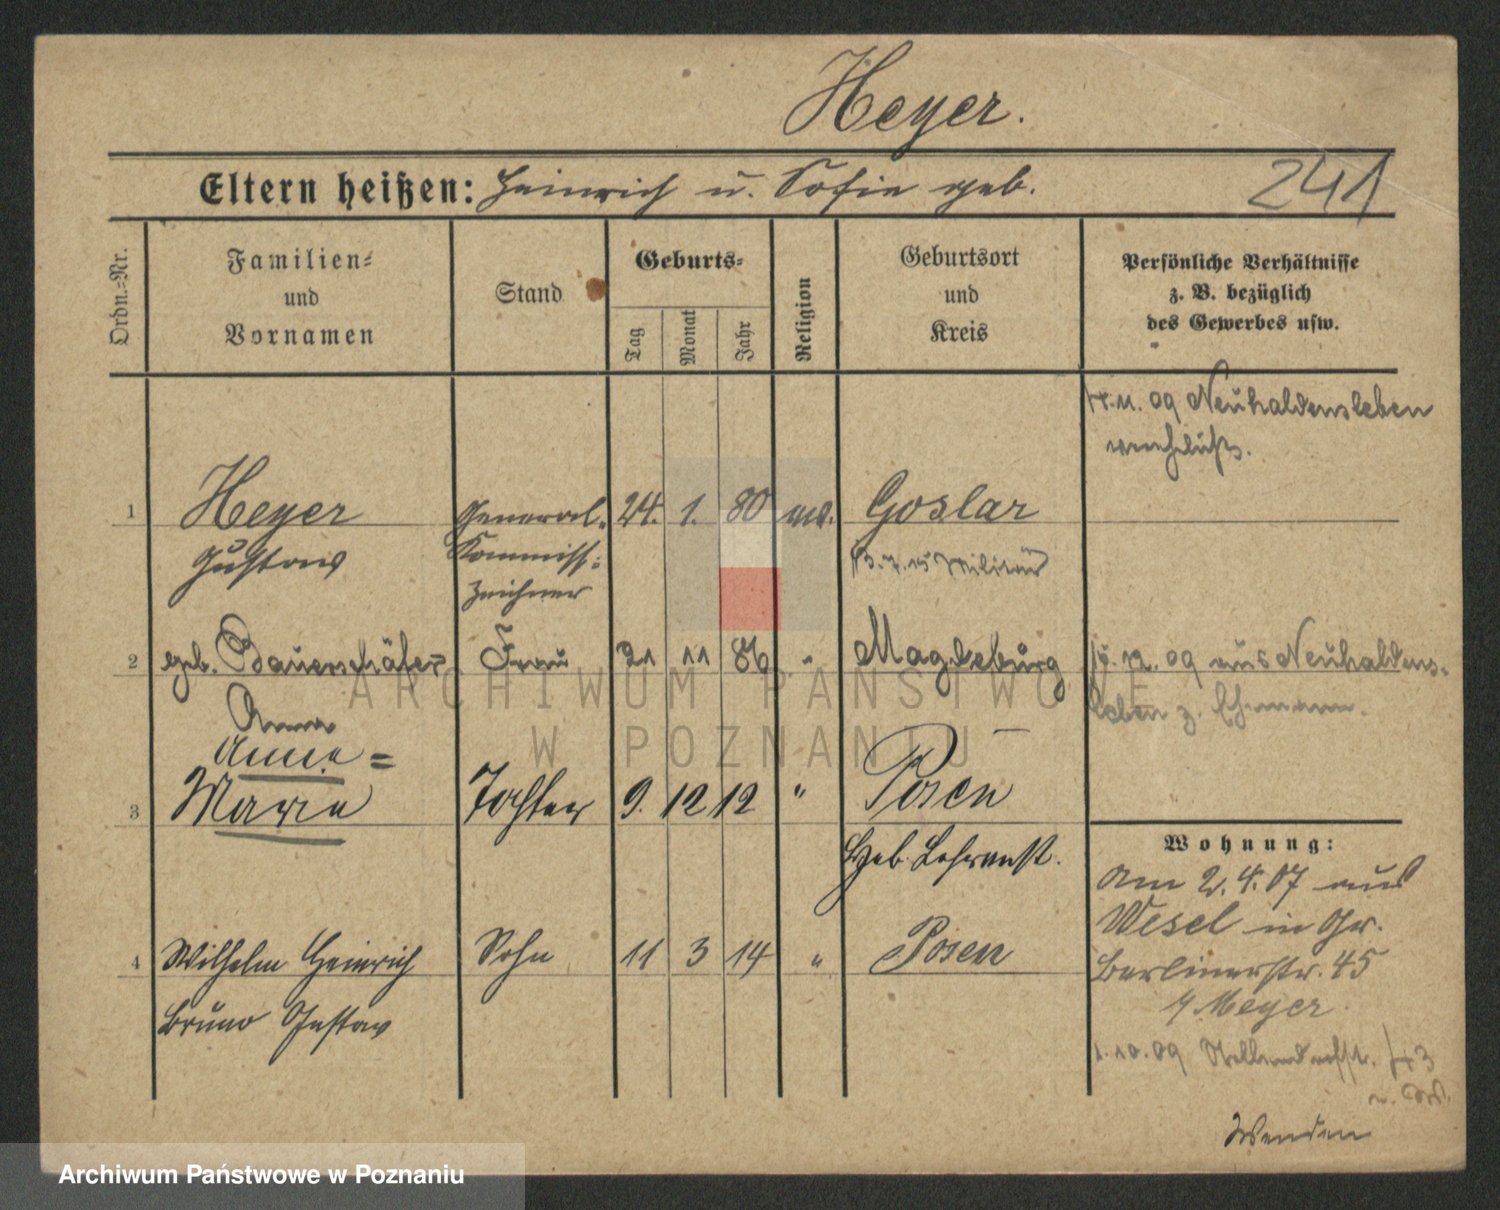 Heyer.
Eltern heißen: Heinrich u. Sofie geb.
241
Ordn.=Nr.
Familien=
und
Vornamen
Stand
Geburts=
Tag
Monat
Jahr
Religion
Geburtsort
und
Kreis
Persönliche Verhältnisse
z. B. bezüglich
des Gewerbes usw.
11. 09 Neuhaldensleben
1 Heyer General- 24. 1. 80 Goslar
Gustav Kommiss= 15 Militär
zeichner
2 geb. Bauerschäfer Frau 21 11 86 " Magdeburg 12. 09 aus Neuhaldens-
leben z. Ehemann.
Anna
Anne =
3 Marie Tochter 9. 12 12 " Posen
Heb. Lehranst.
Wohnung:
Am 2. 4. 07 aus
Wesel in Gr.
Berlinerstr. 45
b/ Meyer
4 Wilhelm Heinrich Sohn 11 3 14 " Posen
Bruno Gustav
1. 10. 09
Wenden
ARCHIWUM PAŃSTWOWE
W POZNANIU
Archiwum Państwowe w Poznaniu